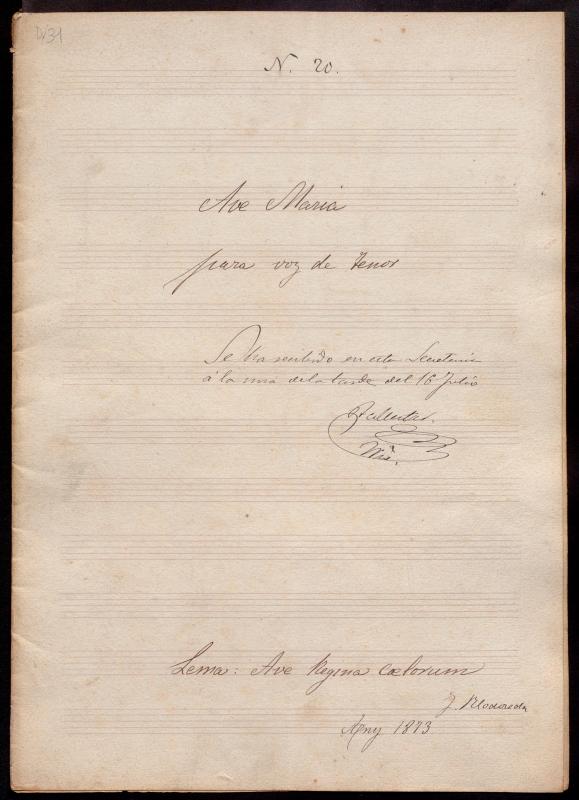 D/31
N. 20.
Ave Maria
para voz de tenor
Se ha recibido en esta Secretaria
á la una de la tarde del 16 Julio
Lema: Ave Regina Cœlorum
J. Rodoreda
Any 1873